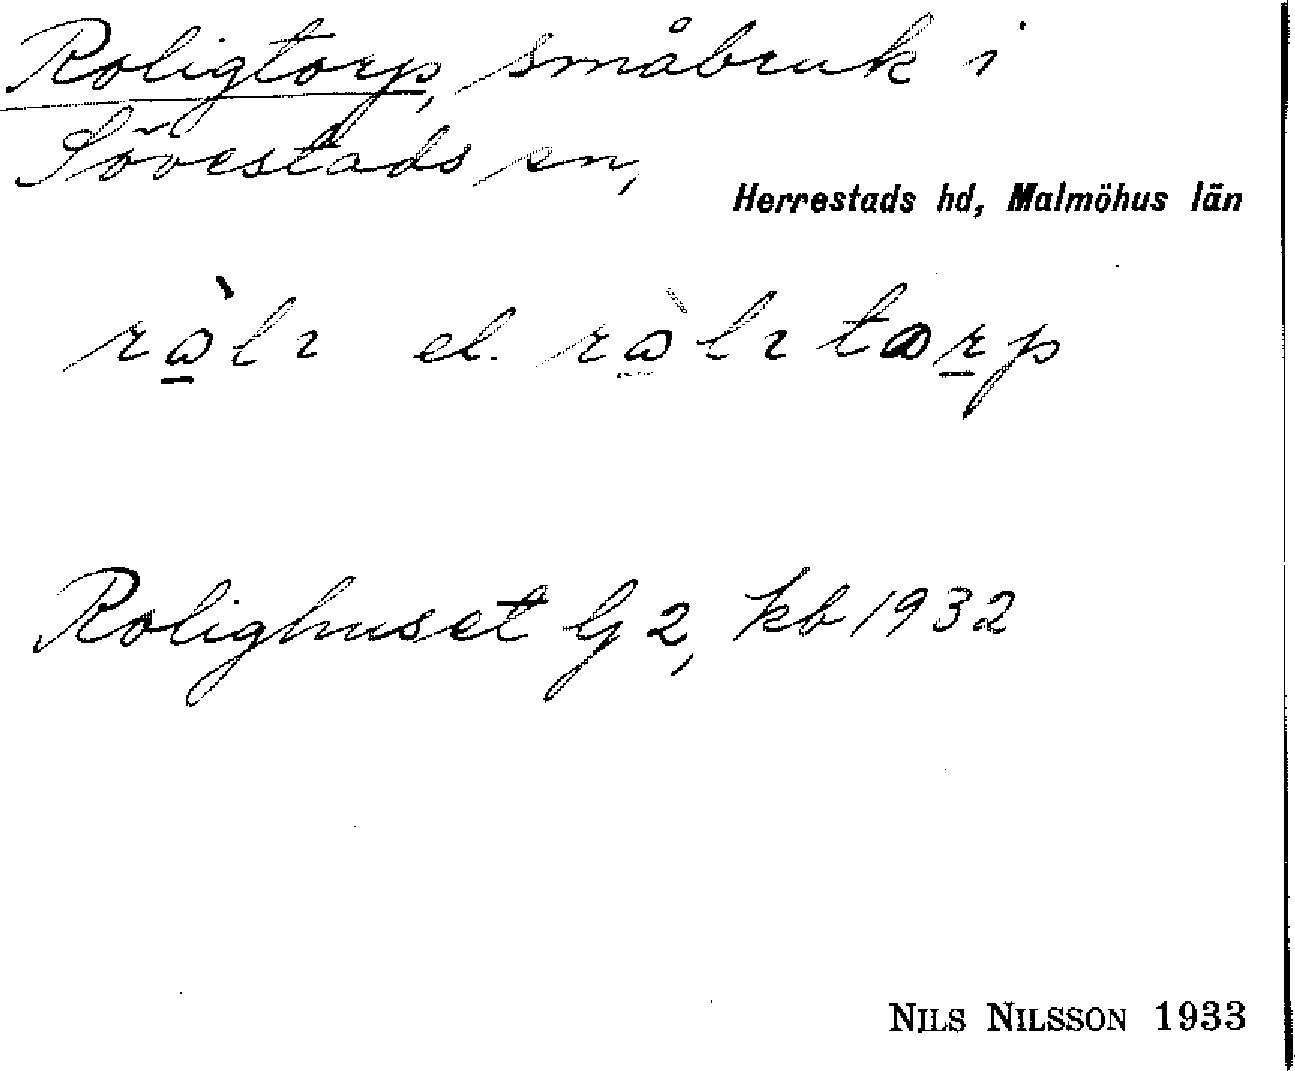 Roligtorp, småbruk i
Sövestads sn,
Herrestads hd, Malmöhus län
el.
Rolighuset G 2, kb 1932
NILS NILSSON 1933